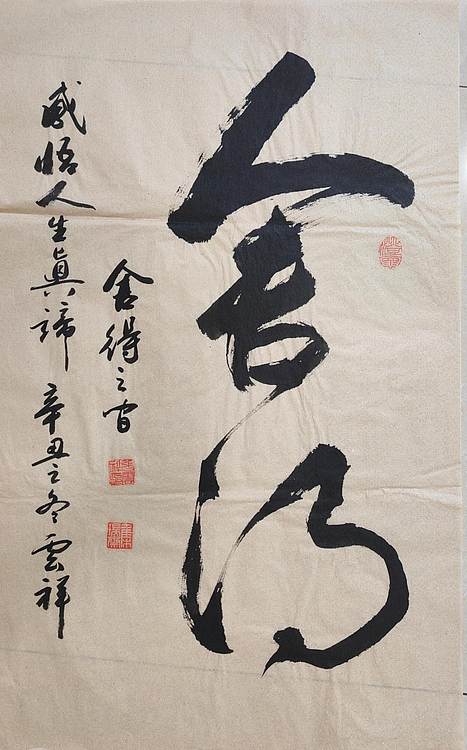 舍得
舍得之间
感悟人生真谛 辛丑之冬雲祥